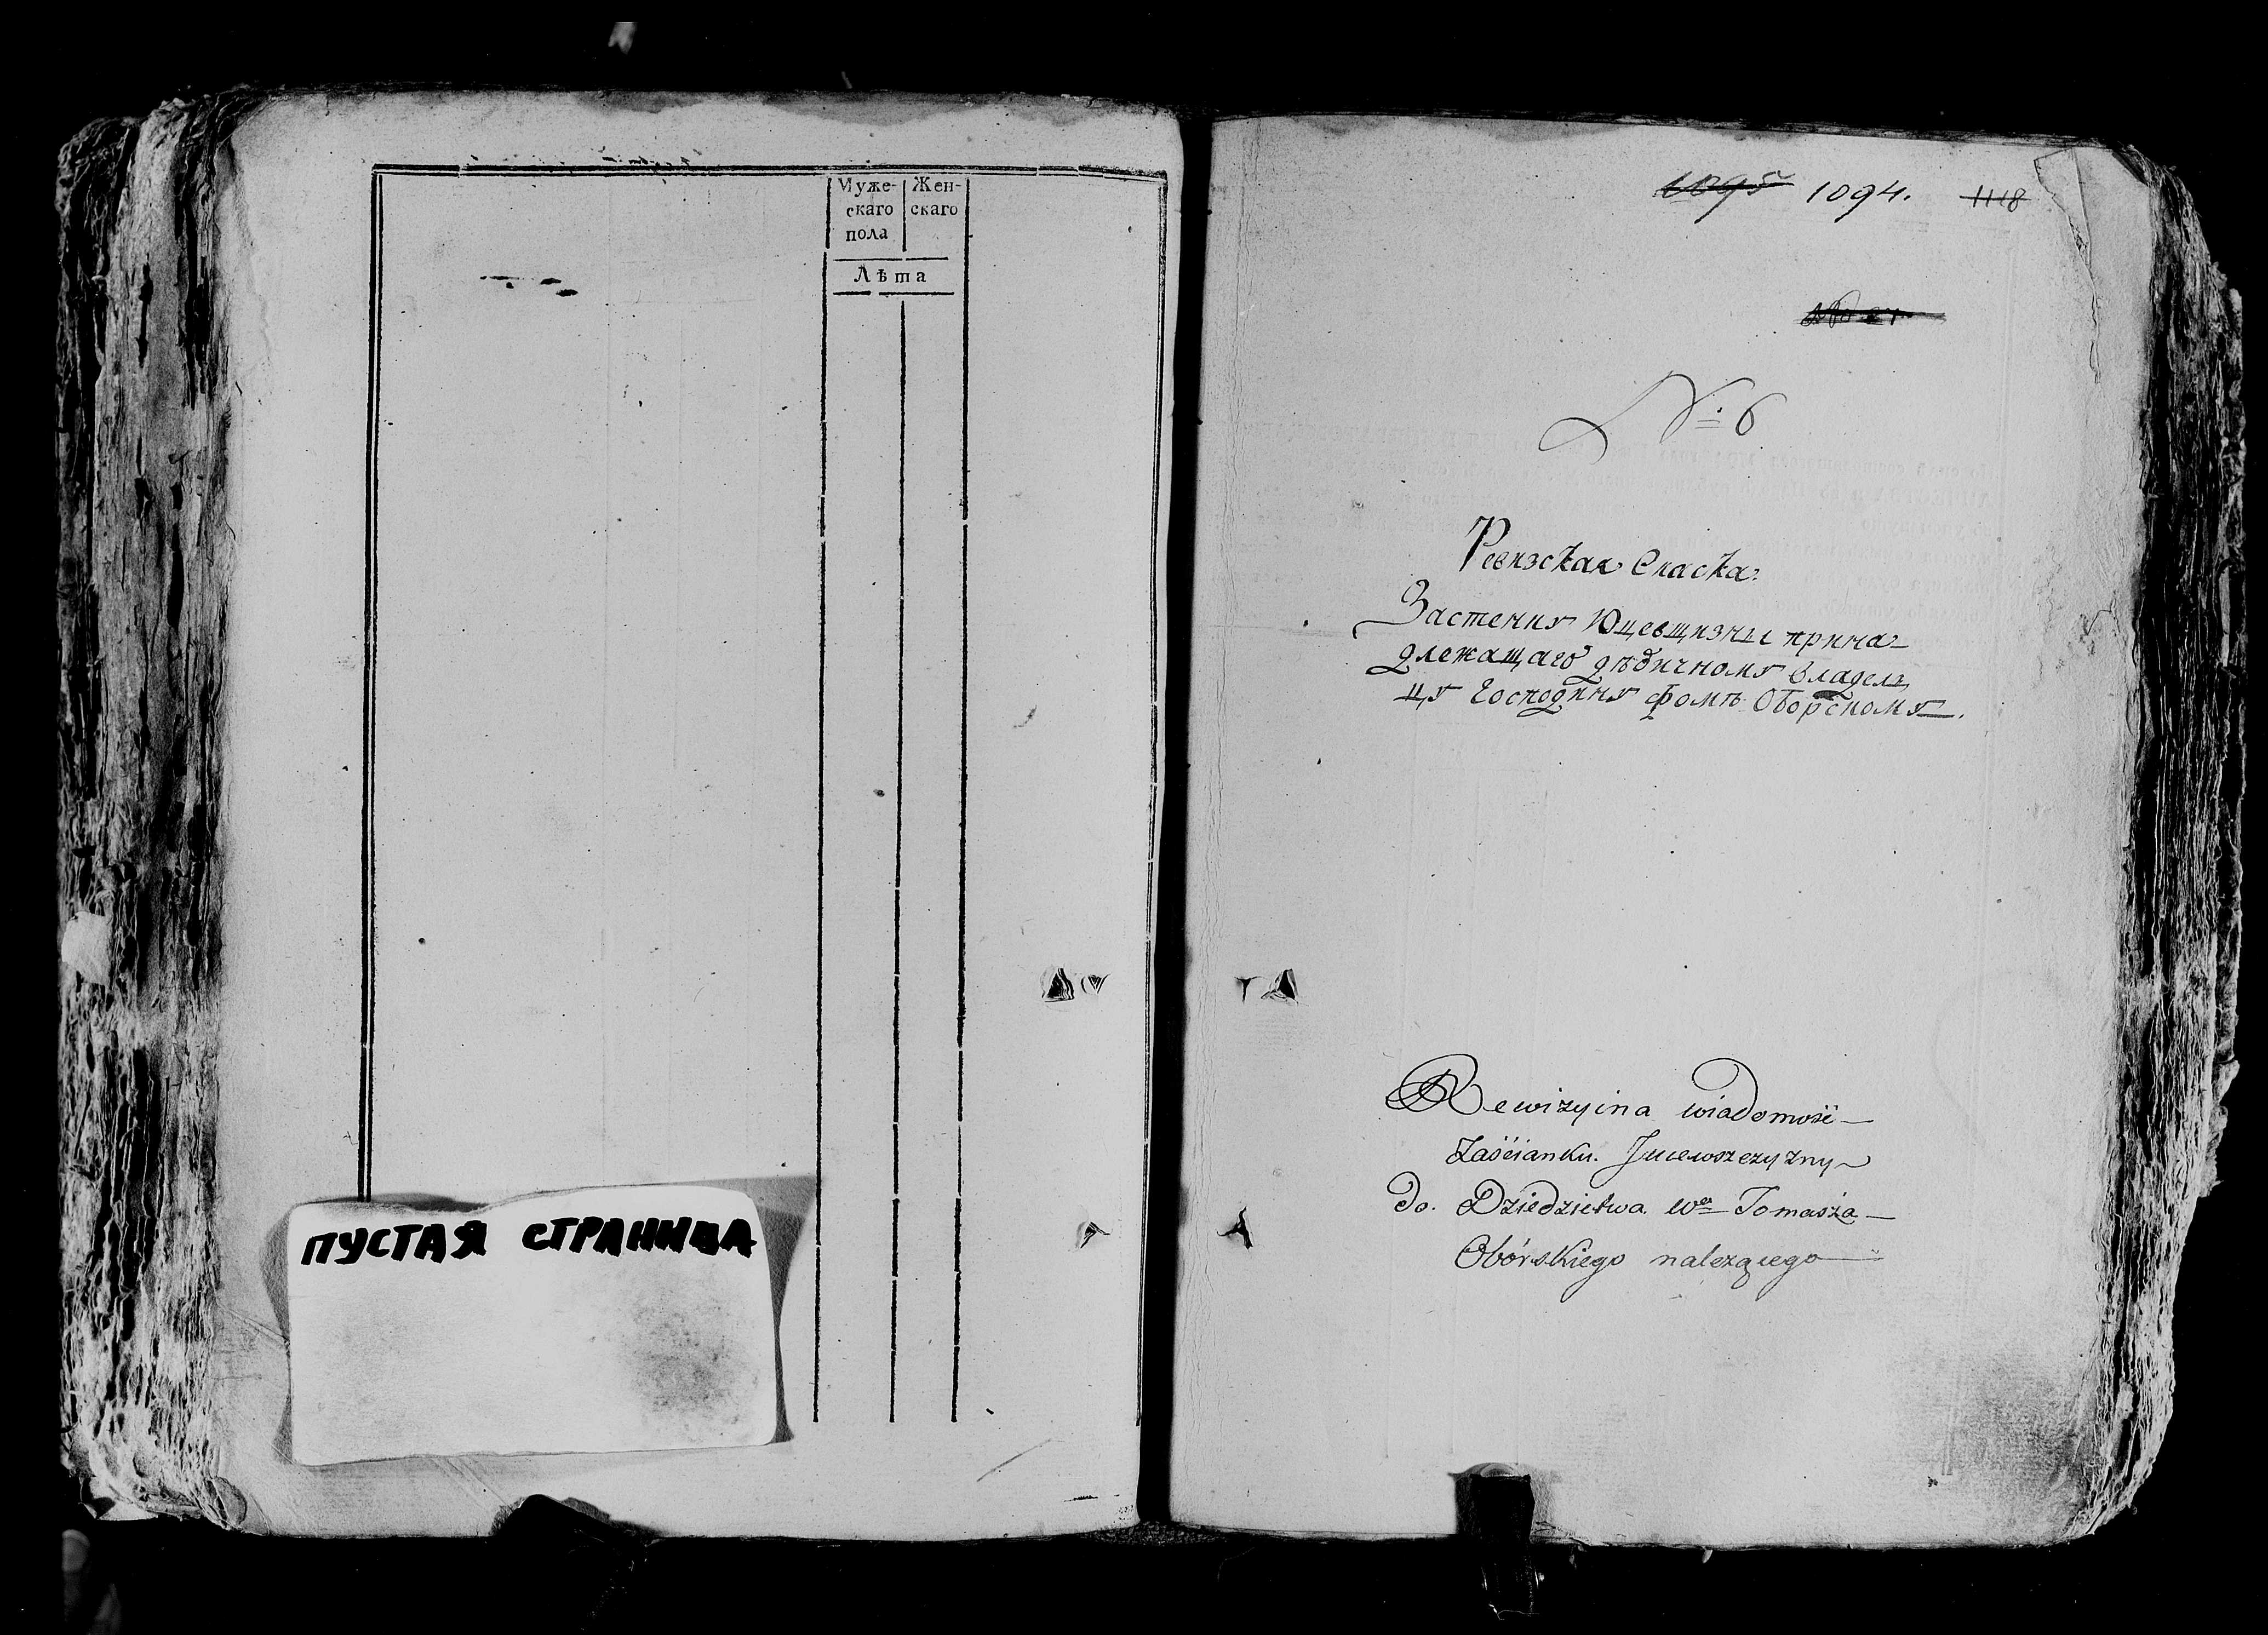 Муже- Жен-
скаго скаго
пола
Лѣта
ПУСТАЯ СТРАНИЦА
1095 1094. 1118
№ 6
Ревизская Скаска
Застенку Юцевщизны прина-
длежащаго дѣдичному владел-
цу Господину Фомѣ Оборскому.
Rewizyina wiadomość
Zaścianku Jucewszczyzny
do Dziedzictwa Wo Tomasza
Obórskiego należącego